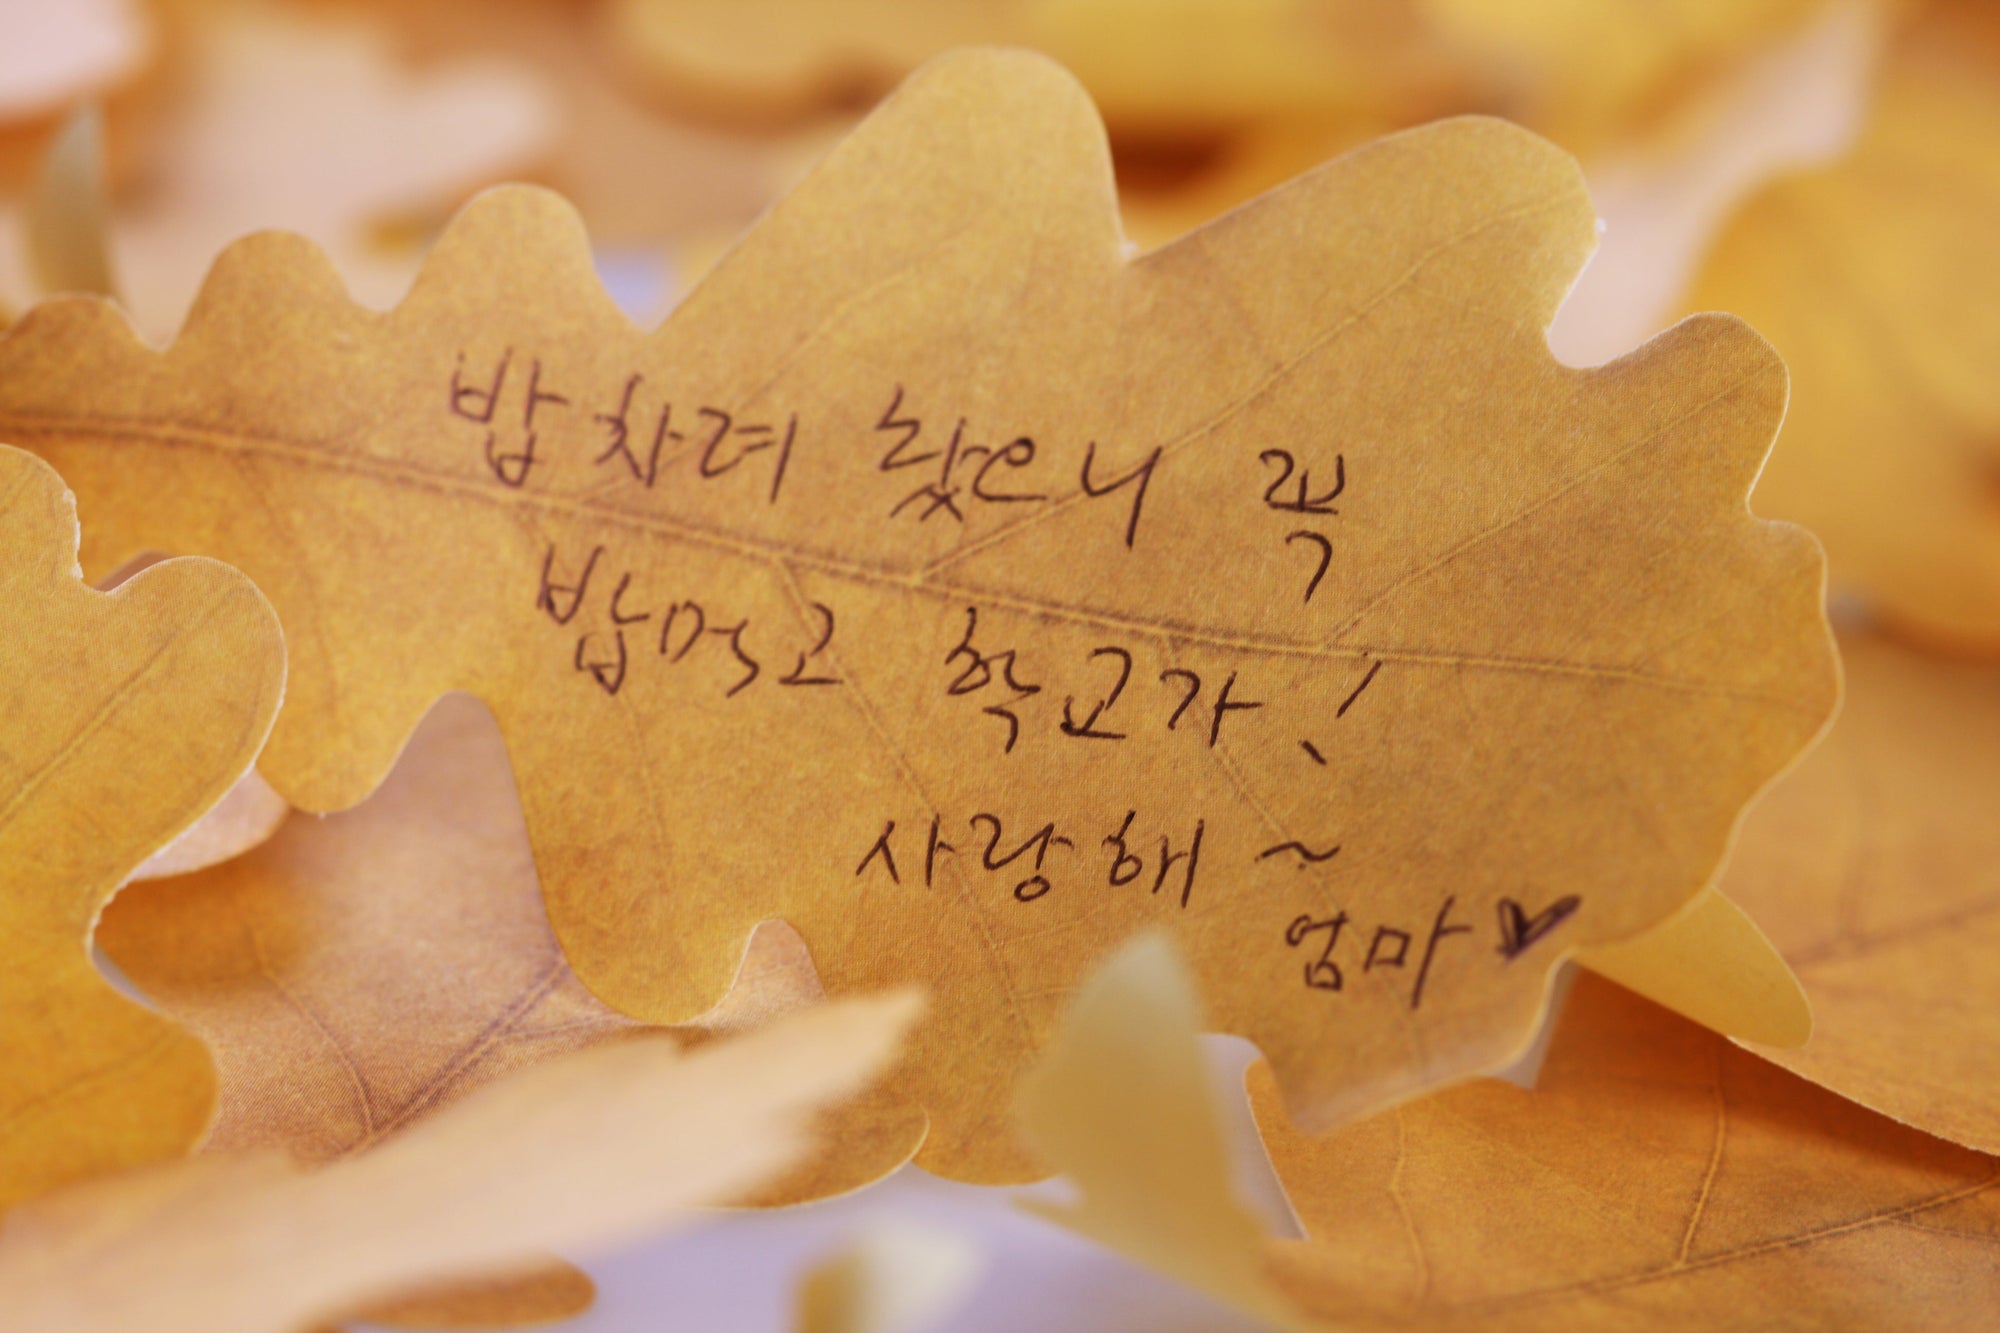 밥 차려 놨으니 꼭
밥 먹고 학교가!
사랑해~
엄마♥